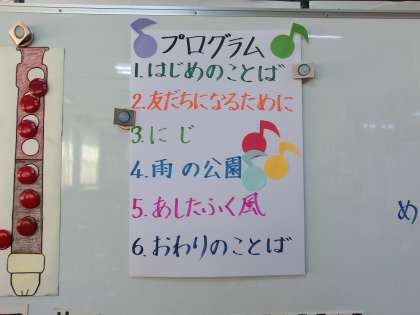 プログラム
1.はじめのことば
2.友だちになるために
3.にじ
4.雨の公園
5.あしたふく風
6.おわりのことば
め